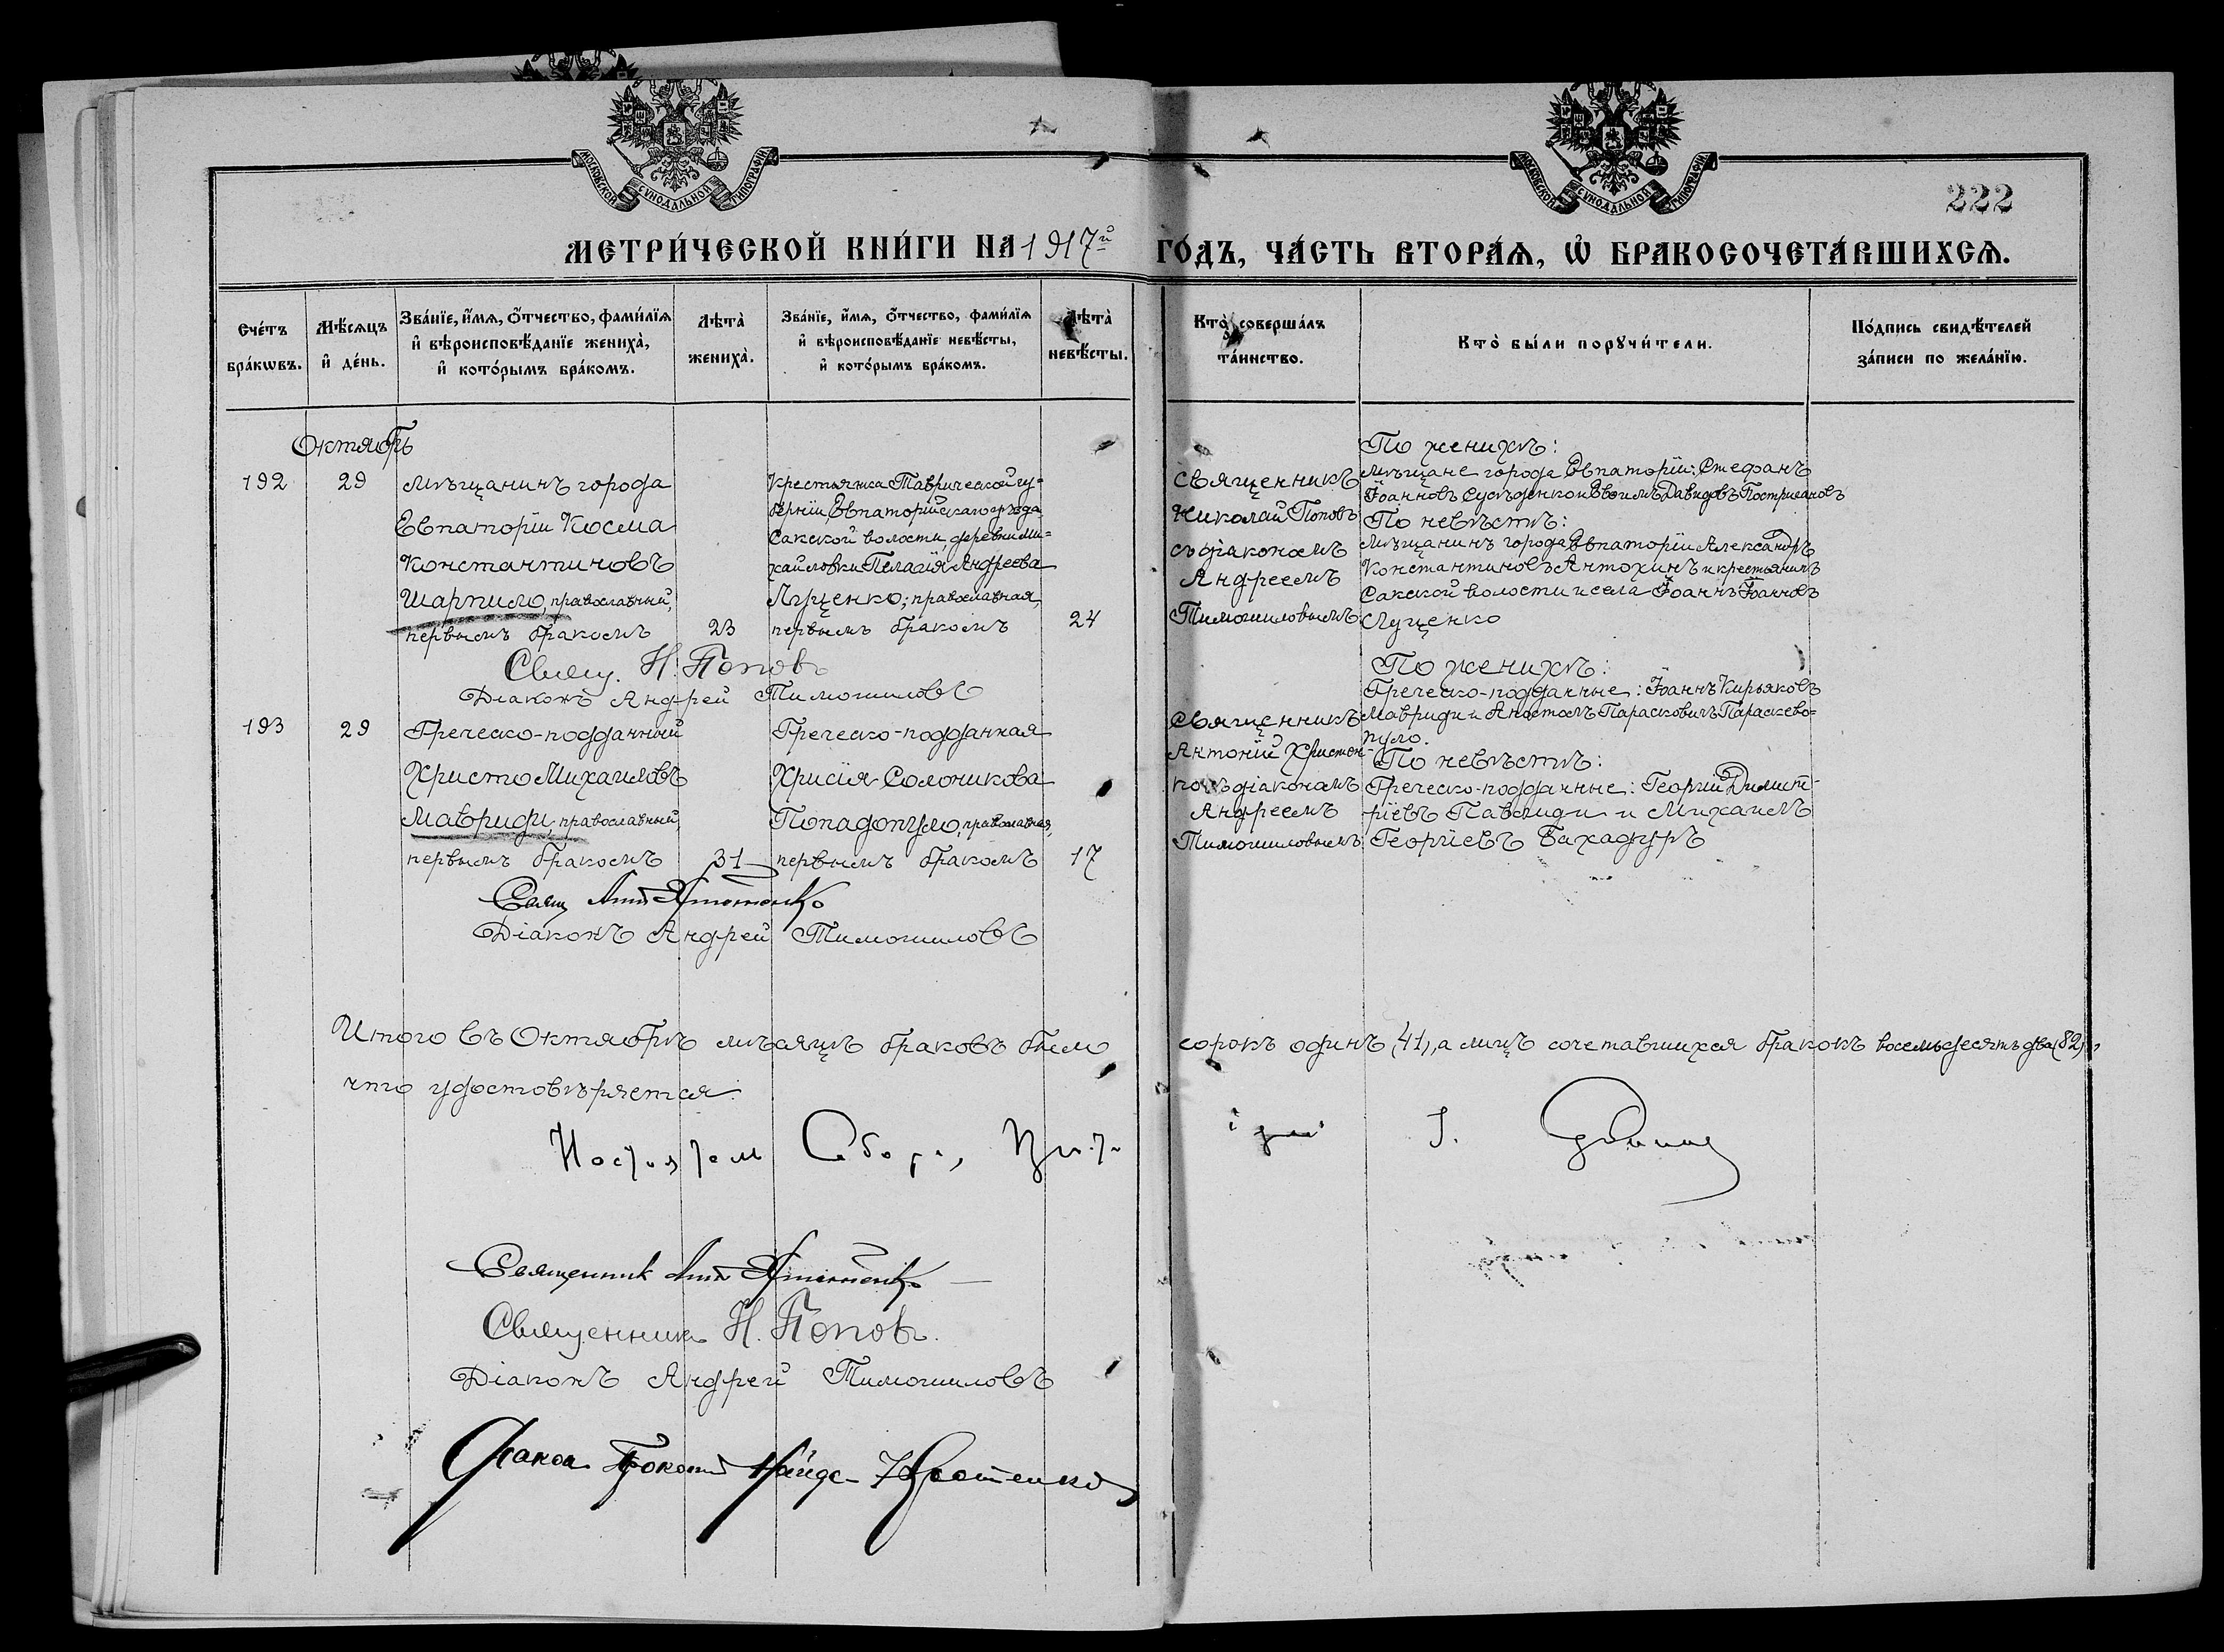 МОСКОВСКОЙ СѴНОДАЛЬНОЙ ТИПОГРАФІИ
МОСКОВСКОЙ СѴНОДАЛЬНОЙ ТИПОГРАФІИ
222
МЕТРИ́ЧЕСКОЙ КНИ́ГИ НА 1917й ГО́ДЪ, ЧА́СТЬ ВТОРА́Ѧ, Ѡ҆ БРАКОСОЧЕТА́ВШИХСѦ.
Сче́тъ
бра́кѡвъ.
Мѣ́сѧцъ
и҆ де́нь.
Зва́нїе, и҆́мѧ, о҆́тчество, фами́лїѧ
и҆ вѣроисповѣ́данїе жениха̀,
и҆ кото́рымъ бра́комъ.
Лѣта̀
жениха̀.
Зва́нїе, и҆́мѧ, о҆́тчество, фами́лїѧ
и҆ вѣроисповѣ́данїе невѣ́сты,
и҆ кото́рымъ бра́комъ.
Лѣта̀
невѣ́сты.
Кто̀ соверша́лъ
та́инство.
Кто̀ бы́ли порꙋчи́тели.
По́дпись свидѣ́телей
за́писи по жела́нїю.
Октябрь
192
29
Мѣщанинъ города
Евпаторіи Косма
Константиновъ
Шарпило, православный,
первымъ бракомъ
23
Крестьянка Таврической гу=
берніи, Евпаторійскаго уѣзда
Сакской волости, деревни Ми=
хайловки Пелагія Андреева
Луценко; православная,
первымъ бракомъ
24
Священникъ
Николай Поповъ
съ діакономъ
Андреемъ
Тимошиловымъ
По женихѣ:
Мѣщане города Евпаторіи: Стефанъ
Іоанновъ и Евфимъ Давидовъ
По невѣстѣ:
Мѣщанинъ города Евпаторіи Александръ
Константиновъ Антохинъ и крестьянинъ
Сакской волости и села Іоаннъ Іоанновъ
Луценко
Свящ. Н. Поповъ
Діаконъ Андрей Тимошиловъ
193
29
Греческо-подданный
Христо Михаиловъ
Мавриди, православный,
первымъ бракомъ
31
Греческо-подданная
Хрисія Солоникова
Попадопуло, православная,
первымъ бракомъ
17
Священникъ
Антоній
діакономъ
Андреемъ
Тимошиловымъ
По женихѣ:
Греческо-подданные: Іоаннъ Кирьяковъ
Мавриди и Апостолъ Парасковичъ Параскево=
пуло.
По невѣстѣ:
Греческо-подданные: Георгій Димит-
ріевъ Павлиди и Михаилъ
Георгіевъ Бахадуръ
Свящ Ант
Діаконъ Андрей Тимошиловъ
Итого въ Октябрѣ мѣсяцѣ браковъ было сорокъ одинъ (41), а лицъ сочетавшихся бракомъ восемьдесятъ два (82),
что удостовѣряется.
Священникъ Ант
Священникъ Н. Поповъ.
Діаконъ Андрей Тимошиловъ